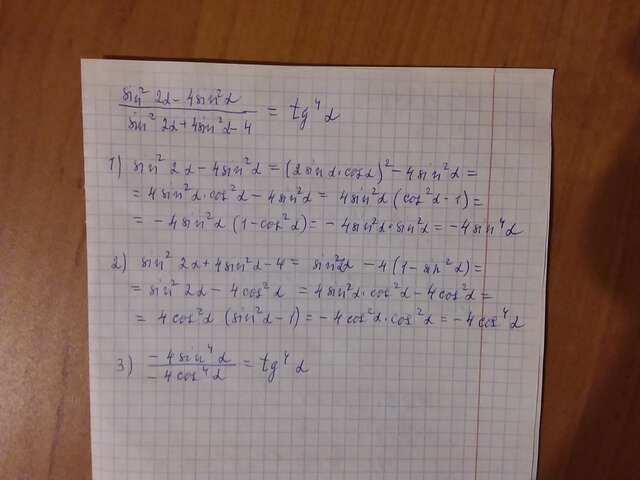 sin² 2α - 4sin²α / sin² 2α + 4sin²α - 4 = tg⁴ α
1) sin² 2α - 4sin²α = (2sin α · cos α)² - 4sin²α =
= 4sin²α · cos²α - 4sin²α = 4sin²α (cos²α - 1) =
= - 4sin²α (1 - cos²α) = - 4sin²α · sin²α = - 4sin⁴α
2) sin² 2α + 4sin²α - 4 = sin²2α - 4(1 - sin²α) =
= sin² 2α - 4cos²α = 4sin²α · cos²α - 4cos²α =
= 4cos²α (sin²α - 1) = - 4cos²α · cos²α = - 4cos⁴α
3) - 4sin⁴α / - 4cos⁴α = tg⁴ α